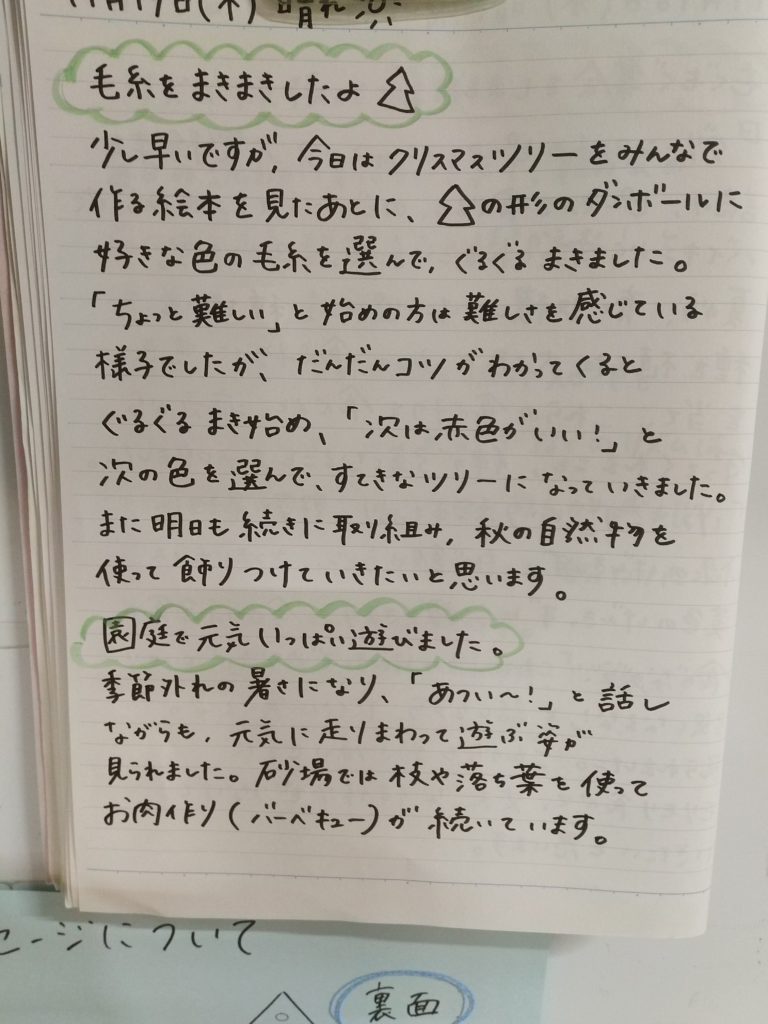 11月19日(木) 晴れ
毛糸をまきまきしたよ
少し早いですが、今日はクリスマスツリーをみんなで
作る絵本を見たあとに、の形のダンボールに
好きな色の毛糸を選んで、ぐるぐるまきました。
「ちょっと難しい」と始めの方は難しさを感じている
様子でしたが、だんだんコツがわかってくると
ぐるぐるまき始め、「次は赤色がいい!」と
次の色を選んで、すてきなツリーになっていきました。
また明日も続きに取り組み、秋の自然物を
使って飾りつけていきたいと思います。
園庭で元気いっぱい遊びました。
季節外れの暑さになり、「あつい〜!」と話し
ながらも、元気に走りまわって遊ぶ姿が
見られました。砂場では枝や落ち葉を使って
お肉作り(バーベキュー)が続いています。
セージについて
裏面